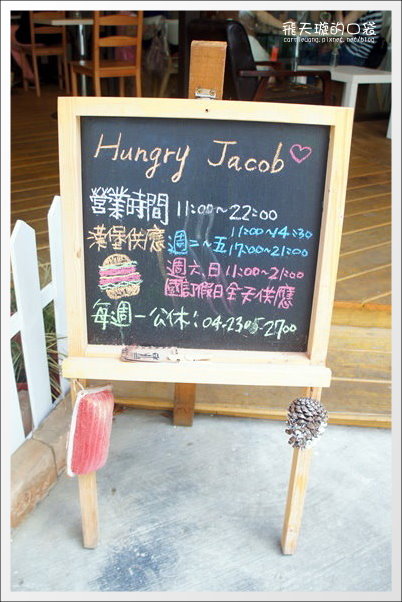 飛天璇的口袋
carolieing.pixnet.net/blog
Hungry Jacob
營業時間 11:00~22:00
漢堡供應 週二~五 11:00~14:30
17:00~21:00
週六.日 11:00~21:00
國訂假日全天供應
每週一公休: 04-2305-2700